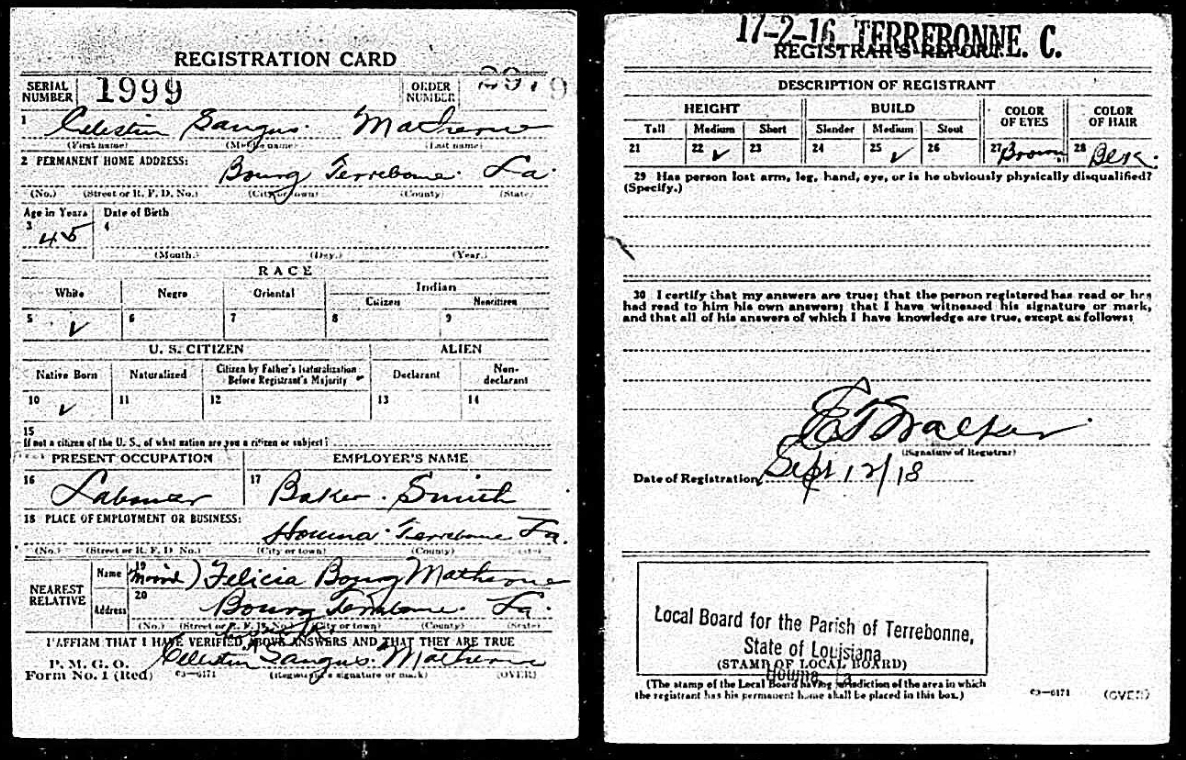 REGISTRATION CARD
SERIAL NUMBER 1999 ORDER NUMBER
1 Celestin Matherne
(First name) (Middle name) (Last name)
2 PERMANENT HOME ADDRESS:
Bourg Terrebonne La.
(No.) (Street or R. F. D. No.) (City or town) (County) (State)
Age in Years Date of Birth
3 45 4
(Month.) (Day.) (Year.)
RACE
White Negro Oriental Indian
Citizen Noncitizen
5 ✓ 6 7 8 9
U. S. CITIZEN ALIEN
Native Born Naturalized Citizen by Father's Naturalization Before Registrant's Majority Declarant Non-declarant
10 ✓ 11 12 13 14
15
If not a citizen of the U. S., of what nation are you a citizen or subject?
PRESENT OCCUPATION EMPLOYER'S NAME
16 Laborer 17 Baker Smith
18 PLACE OF EMPLOYMENT OR BUSINESS:
Houma Terrebonne La.
(No.) (Street or R. F. D. No.) (City or town) (County) (State)
NEAREST RELATIVE Name 19 Felicia Bourg Matherne
Address 20 Bourg Terrebonne La.
(No.) (Street or R. F. D. No.) (City or town) (County) (State)
I AFFIRM THAT I HAVE VERIFIED ABOVE ANSWERS AND THAT THEY ARE TRUE
P. M. G. O.
Form No. 1 (Red) 03—6171 (Registrant's signature or mark) (OVER)
Celestin Matherne
17-2-16 TERREBONNE. C.
REGISTRAR'S REPORT
DESCRIPTION OF REGISTRANT
HEIGHT BUILD COLOR OF EYES COLOR OF HAIR
Tall Medium Short Slender Medium Stout
21 22 ✓ 23 24 25 ✓ 26 27 Brown 28
29 Has person lost arm, leg, hand, eye, or is he obviously physically disqualified?
(Specify.)
30 I certify that my answers are true; that the person registered has read or has
had read to him his own answers; that I have witnessed his signature or mark,
and that all of his answers of which I have knowledge are true, except as follows:
(Signature of Registrar)
Date of Registration Sept 12/18
Local Board for the Parish of Terrebonne,
State of Louisiana
(STAMP OF LOCAL BOARD)
Houma La
(The stamp of the Local Board having jurisdiction of the area in which
the registrant has his permanent home shall be placed in this box.)
03—6171 (OVER)